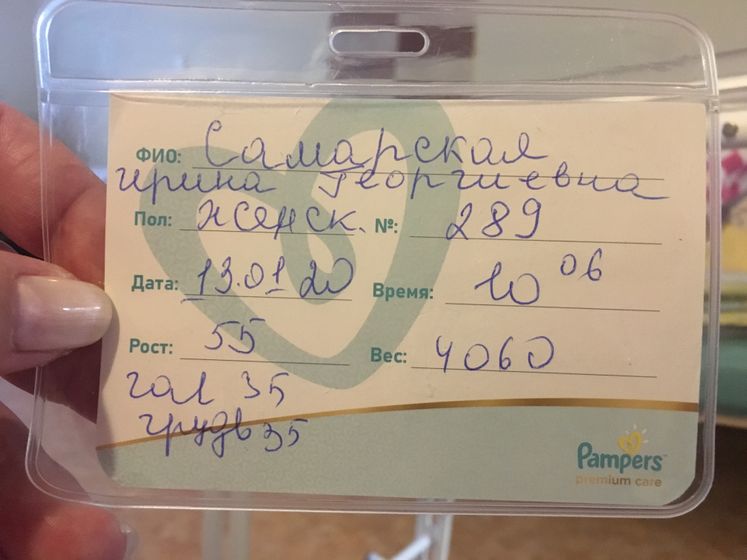 ФИО: Самарская
ирина Георгиевна
Пол: женск. №: 289
Дата: 13.01 20 Время: 10 06
Рост: 55 Вес: 4060
гол 35
грудь 35
Pampers
premium care